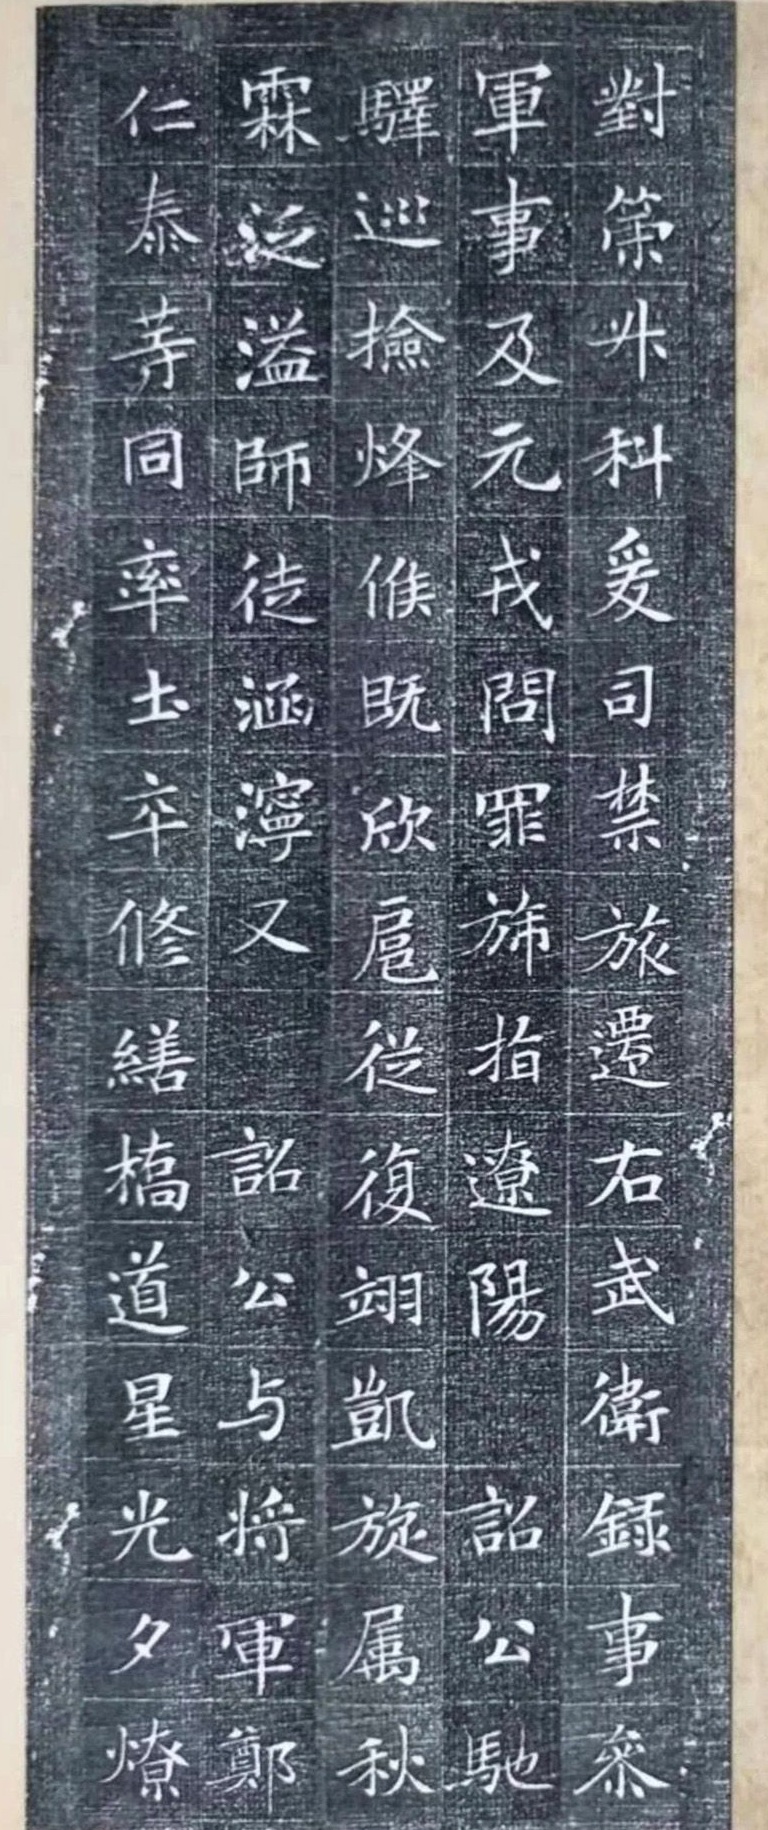 對策升科爰司禁旅還右武衛録事參
軍事及元戎問罪旆指遼陽 詔公馳
驛巡撿烽候既欣扈從復翊凱旋属秋
霖泛溢師徒涵濘又 詔公与將軍鄭
仁泰等同率土卒修繕橋道星光夕燎